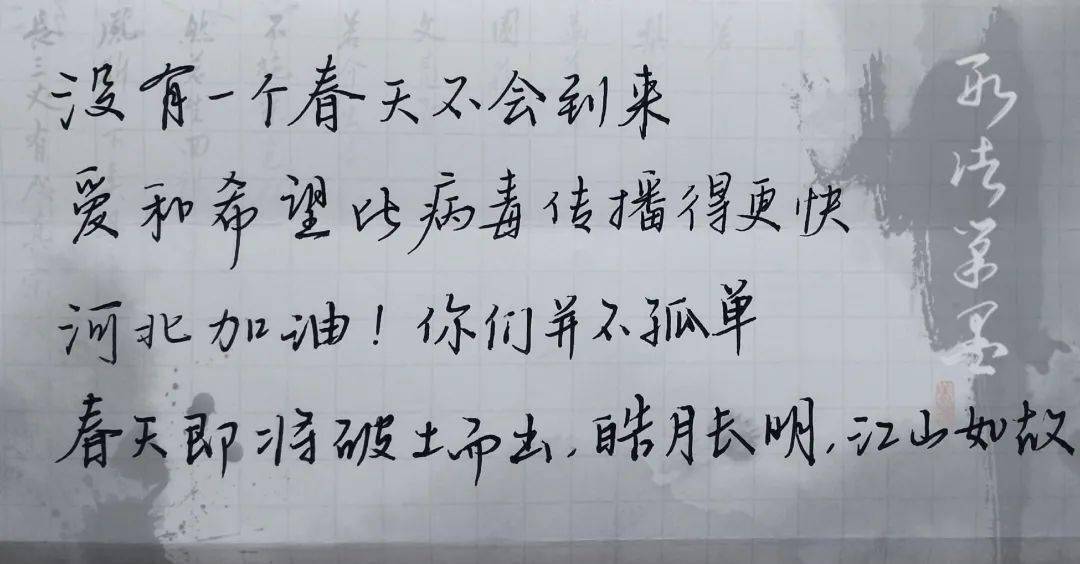 没有一个春天不会到来
爱和希望比病毒传播得更快
河北加油！你们并不孤单
春天即将破土而出,皓月长明,江山如故